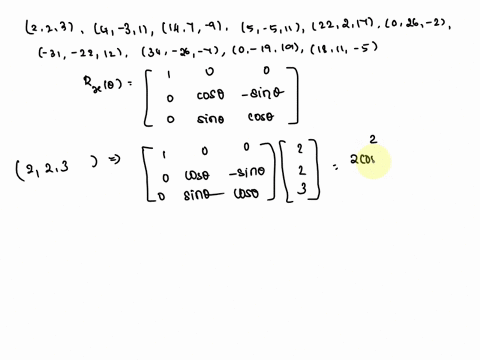 (2,2,3), (4,-3,1), (14,7,-9), (5,-5,11), (22,2,17), (0,26,-2),
(-31,-22,12), (34,-26,-7), (0,-19,19), (18,11,-5)
Rx(θ) = [ 1 0 0
0 cosθ -sinθ
0 sinθ cosθ ]
(2,2,3) => [ 1 0 0
0 cosθ -sinθ
0 sinθ cosθ ] [ 2
2
3 ] = 2
2cos